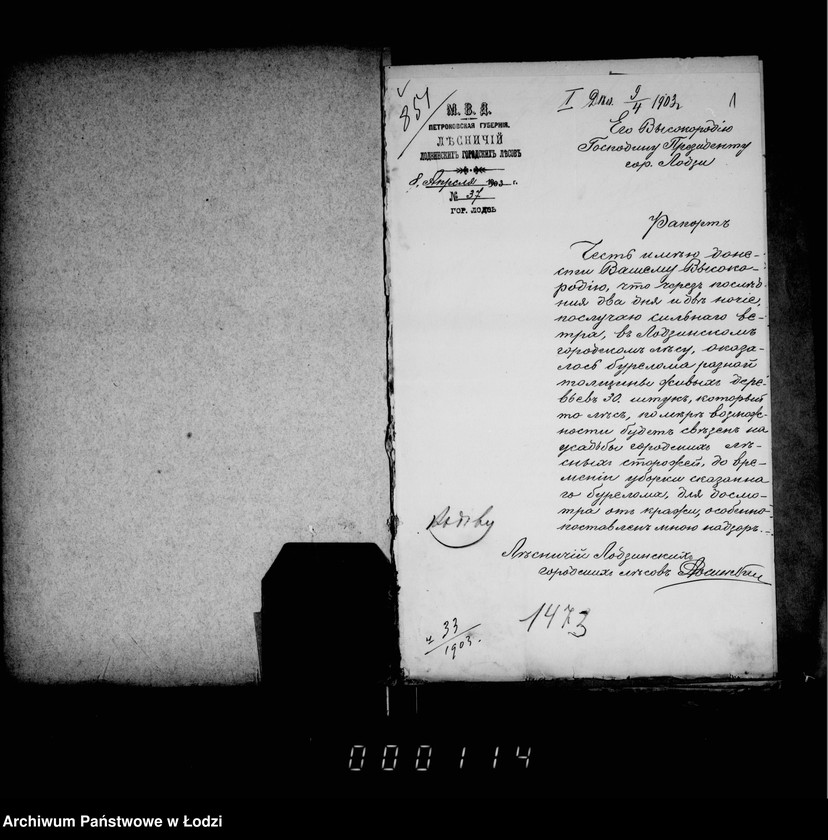 851
М. В. Д.
ПЕТРОКОВСКАЯ ГУБЕРНІЯ.
ЛѢСНИЧІЙ
ЛОДЗИНСКИХЪ ГОРОДСКИХЪ ЛѢСОВЪ
8. Апрѣля 1903 г.
№ 37
ГОР. ЛОДЗЬ
I 9/4 1903 г
1
Его Высокородію
Господину Президенту
гор. Лодзи
Рапортъ
Честь имѣю доне-
сти Вашему Высоко-
родію, что черезъ послѣд-
нія два дня и двѣ ночи,
послучаю сильнаго вѣ-
тра, въ Лодзинскомъ
городскомъ лѣсу, оказа-
лось бурелома разной
толщины живыхъ дере-
вьевъ 30. штукъ, который
то лѣсъ, по мѣрѣ возмож-
ности будетъ свѣзенъ на
усадьбы городскихъ лѣ-
сныхъ сторожей, до вре-
меніи уборки сказанна-
го бурелома, для досмо-
тра отъ кражи, особенно
поставленъ мною надзоръ.
Лѣсничій Лодзинскихъ
городскихъ лѣсовъ
1473
33
1903.
000114
Archiwum Państwowe w Łodzi